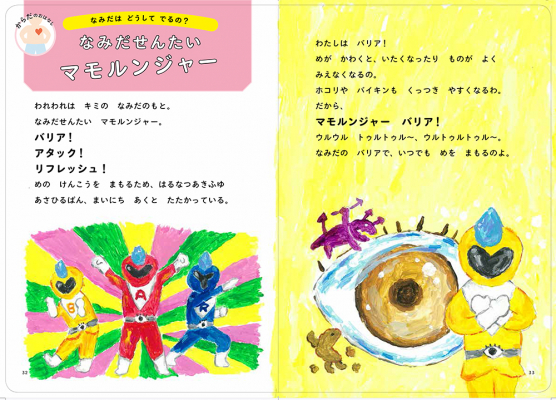 からだのおはなし
なみだは どうして でるの？
なみだせんたい
マモルンジャー
われわれは キミの なみだのもと。
なみだせんたい マモルンジャー。
バリア！
アタック！
リフレッシュ！
めの けんこうを まもるため、はるなつあきふゆ
あさひるばん、まいにち あくと たたかっている。
B
A
R
32
わたしは バリア！
めが かわくと、いたくなったり ものが よく
みえなくなるの。
ホコリや バイキンも くっつき やすくなるわ。
だから、
マモルンジャー バリア！
ウルウル トゥルトゥル〜、ウルトゥルトゥル〜。
なみだの バリアで、いつでも めを まもるのよ。
33